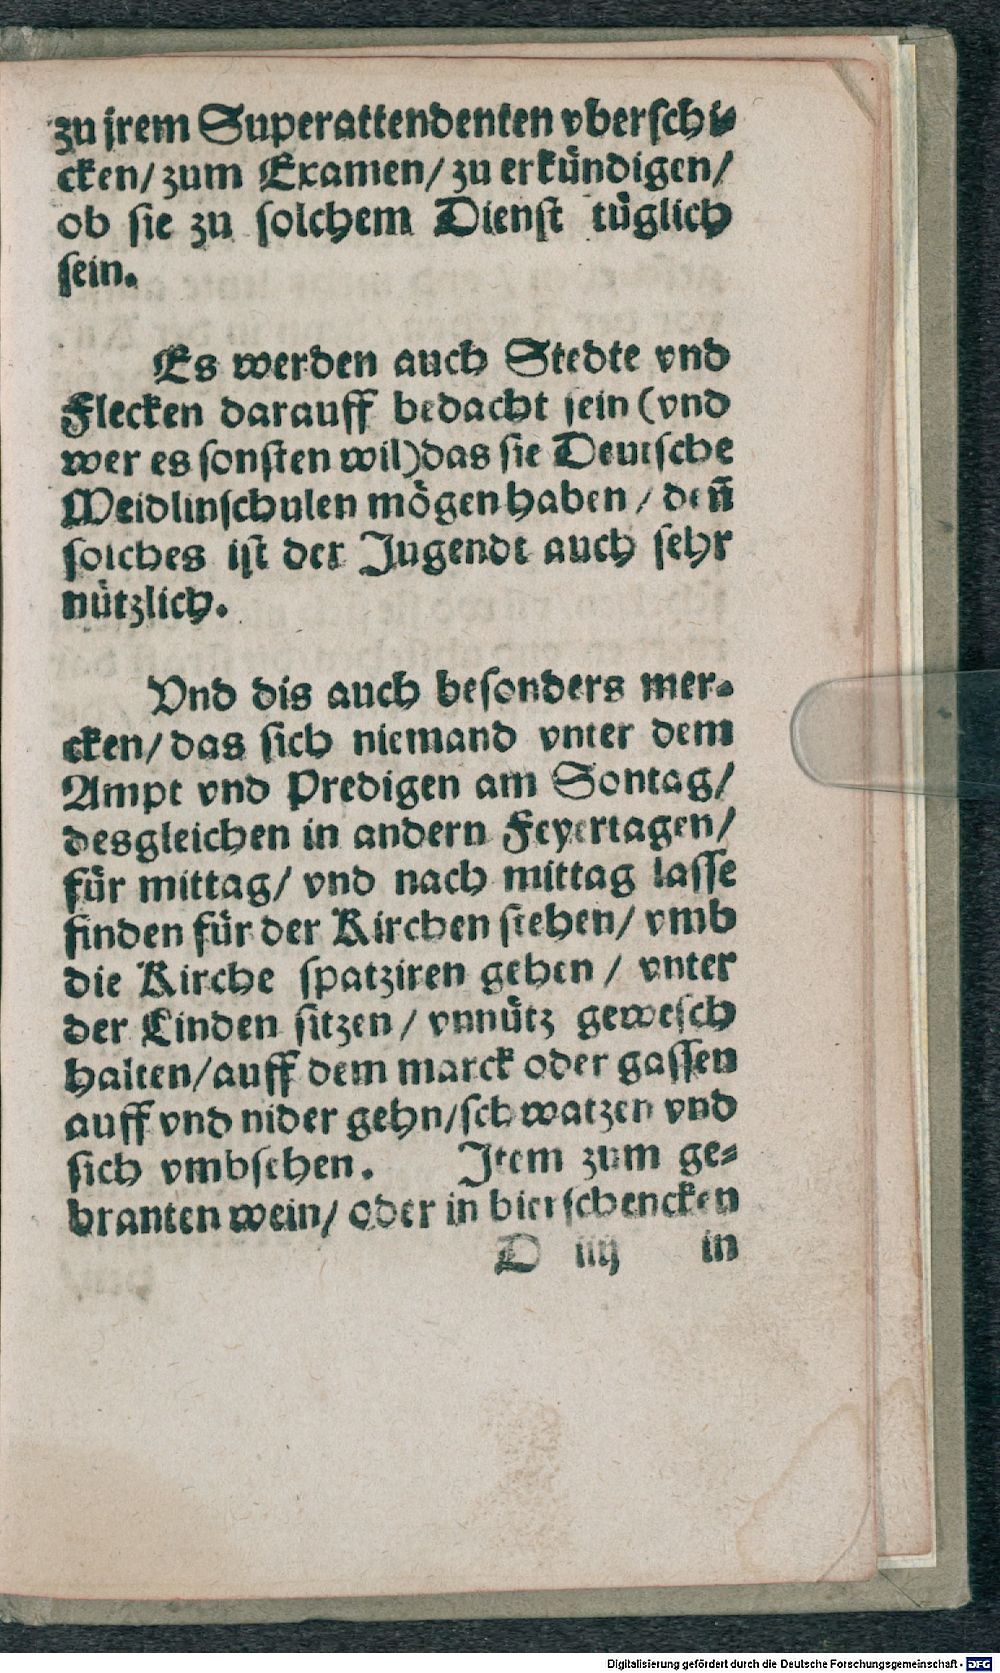 zu jrem Superattendenten vberschi⸗
cken/ zum Examen/ zu erkündigen/
ob sie zu solchem Dienst tüglich
sein.
Es werden auch Stedte vnd
Flecken darauff bedacht sein (vnd
wer es sonsten wil) das sie Deutsche
Meidlinschulen mögen haben / deñ
solches ist der Jugendt auch sehr
nützlich.
Vnd dis auch besonders mer⸗
cken/ das sich niemand vnter dem
Ampt vnd Predigen am Sontag/
desgleichen in andern Feyertagen/
für mittag/ vnd nach mittag lasse
finden für der Kirchen stehen/ vmb
die Kirche spatziren gehen / vnter
der Linden sitzen/ vnnütz gewesch
halten/ auff dem marck oder gassen
auff vnd nider gehn/ schwatzen vnd
sich vmbsehen. Item zum ge⸗
branten wein/ oder in bierschencken
D iiij in
Digitalisierung gefördert durch die Deutsche Forschungsgemeinschaft - DFG